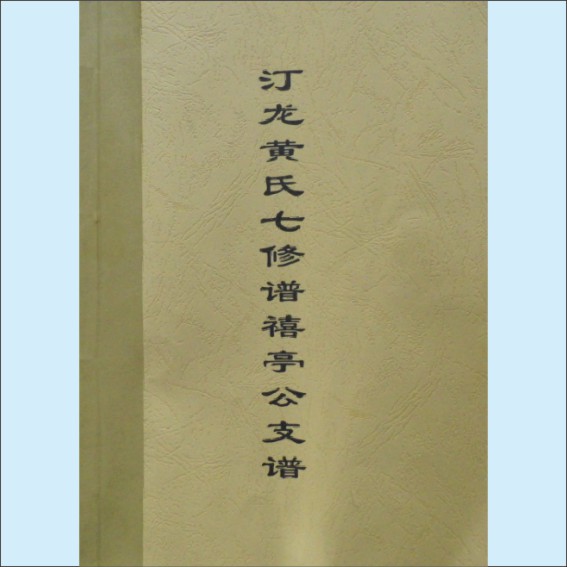 汀龙黄氏七修谱禧亭公支谱